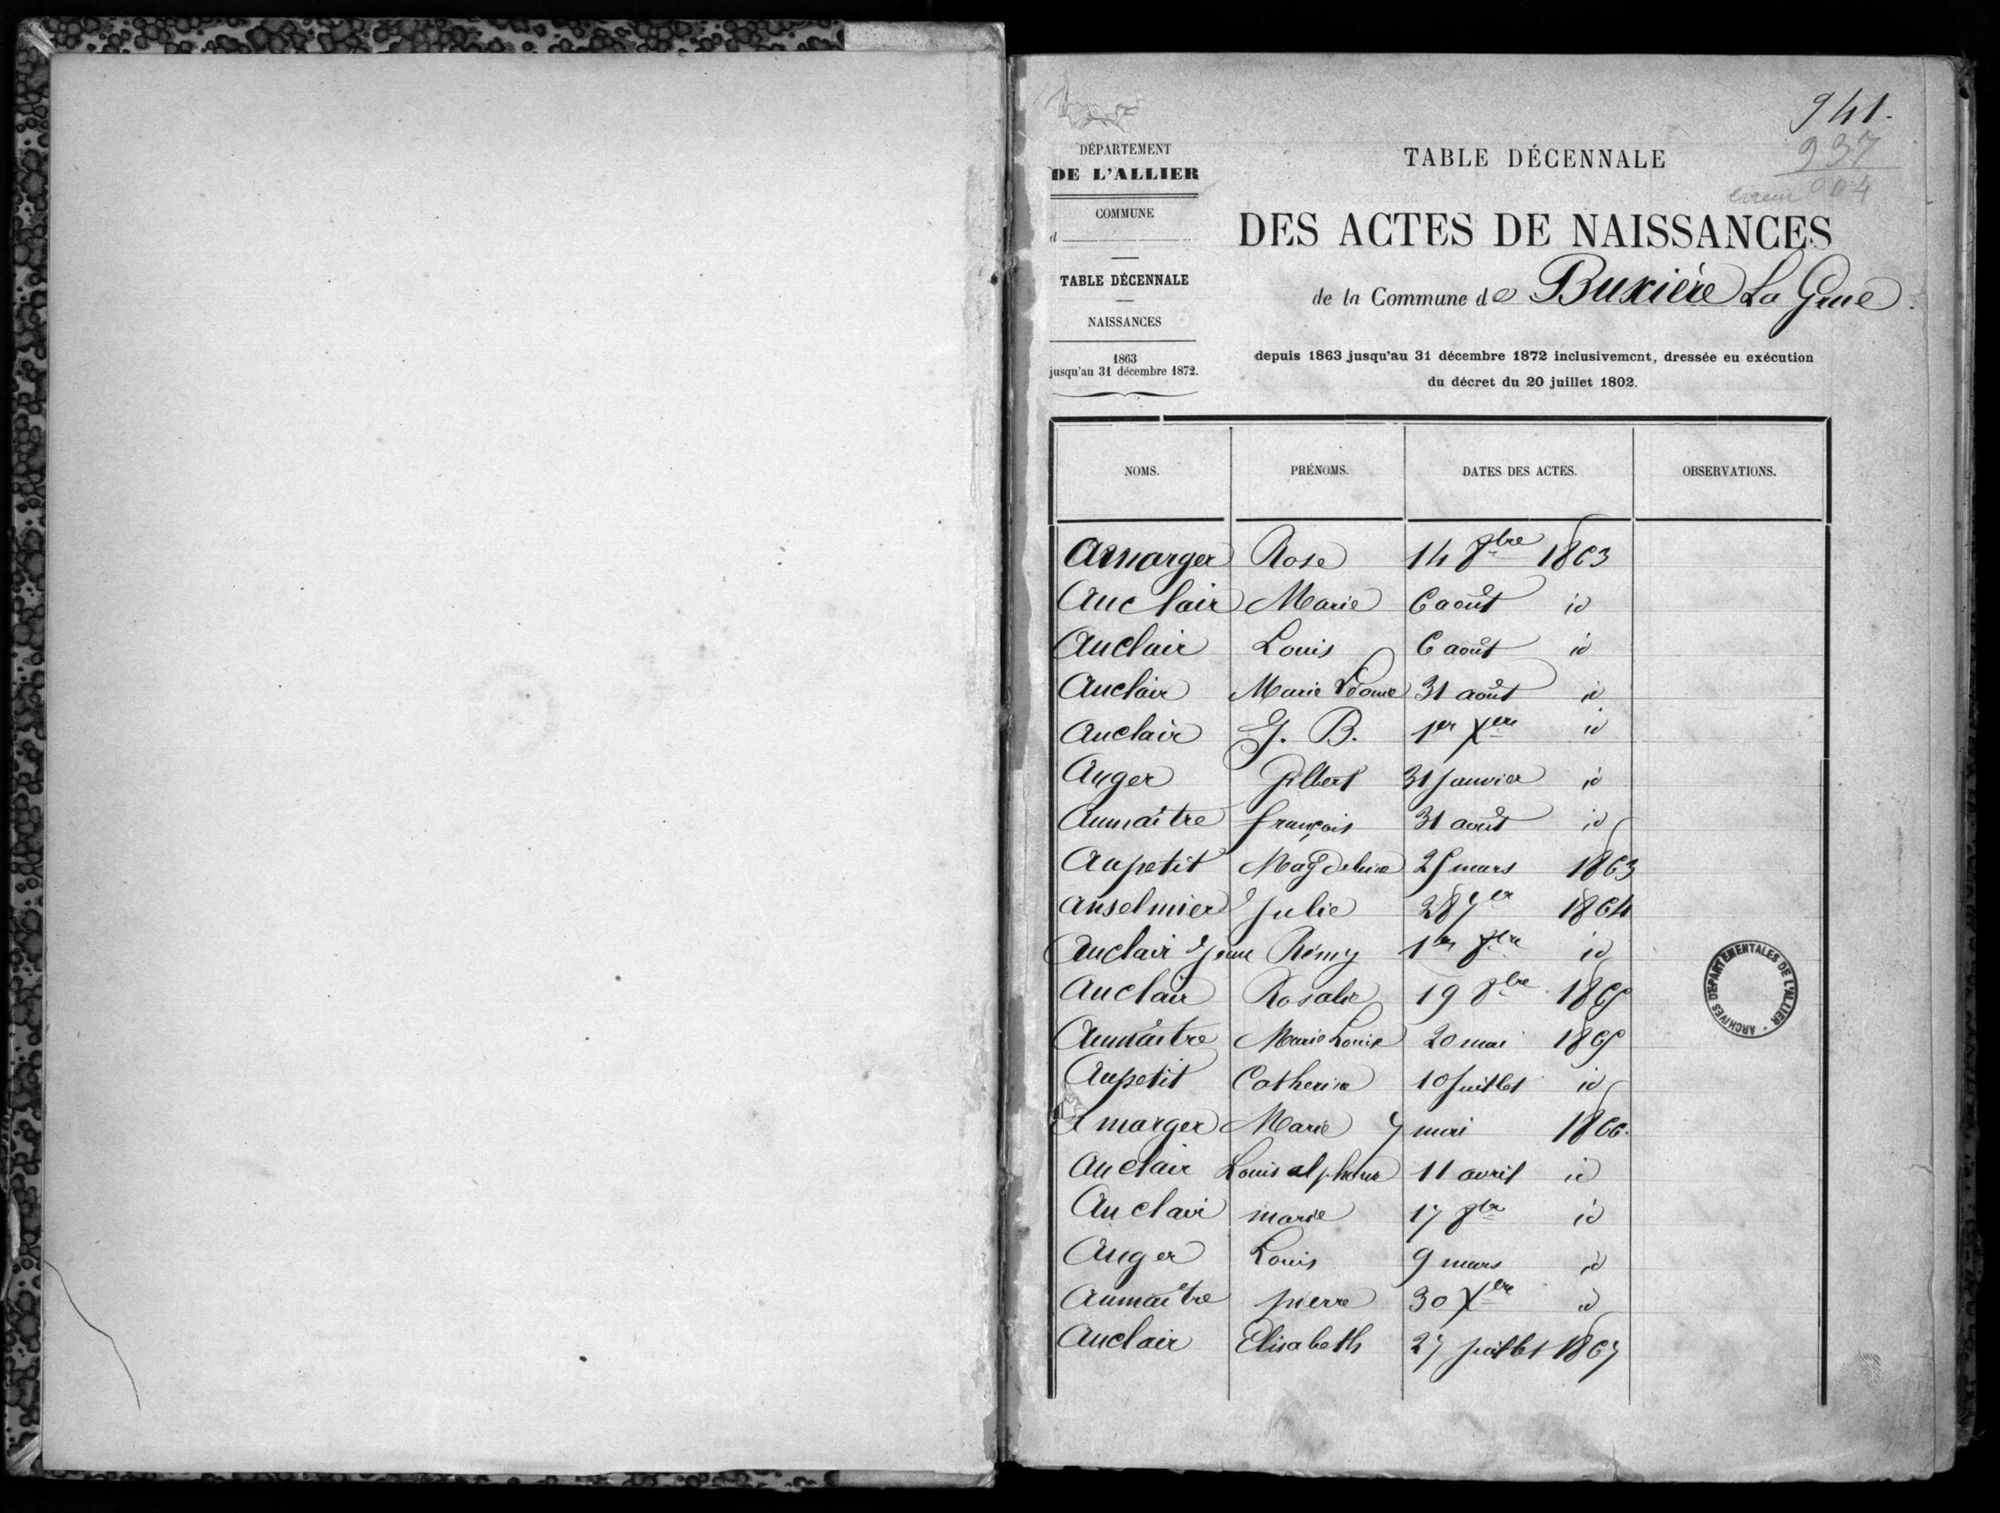 941.
937
904
DÉPARTEMENT
DE L'ALLIER
COMMUNE
d
TABLE DÉCENNALE
NAISSANCES
1863
jusqu'au 31 décembre 1872.
TABLE DÉCENNALE
DES ACTES DE NAISSANCES
de la Commune de Buxière La Grue
depuis 1863 jusqu'au 31 décembre 1872 inclusivement, dressée en exécution
du décret du 20 juillet 1802.
NOMS. PRÉNOMS. DATES DES ACTES. OBSERVATIONS.
Amarger Rose 14 8bre 1863
Auclair Marie 6 août id
Auclair Louis 6 août id
Auclair Marie Léonie 31 août id
Auclair J. B. 1er Xbre id
Auger Gilbert 31 janvier id
Aumaître françois 31 août id
Aupetit Magdeleine 25 mars 1863
Anselmier Julie 28 1864
Auclair Jean Rémy 1er id
Auclair Rosalie 19 8bre 1865
Aumaître Marie Louise 20 mai 1865
Aupetit Catherine 10 Juillet id
Amarger Marie 7 mai 1866.
Auclair Louis alphonse 11 avril id
Auclair marie 17 8bre id
Auger Louis 9 mars id
Aumaître pierre 30 Xbre id
Auclair Elisabeth 27 juillet 1867
ARCHIVES DÉPARTEMENTALES DE L'ALLIER